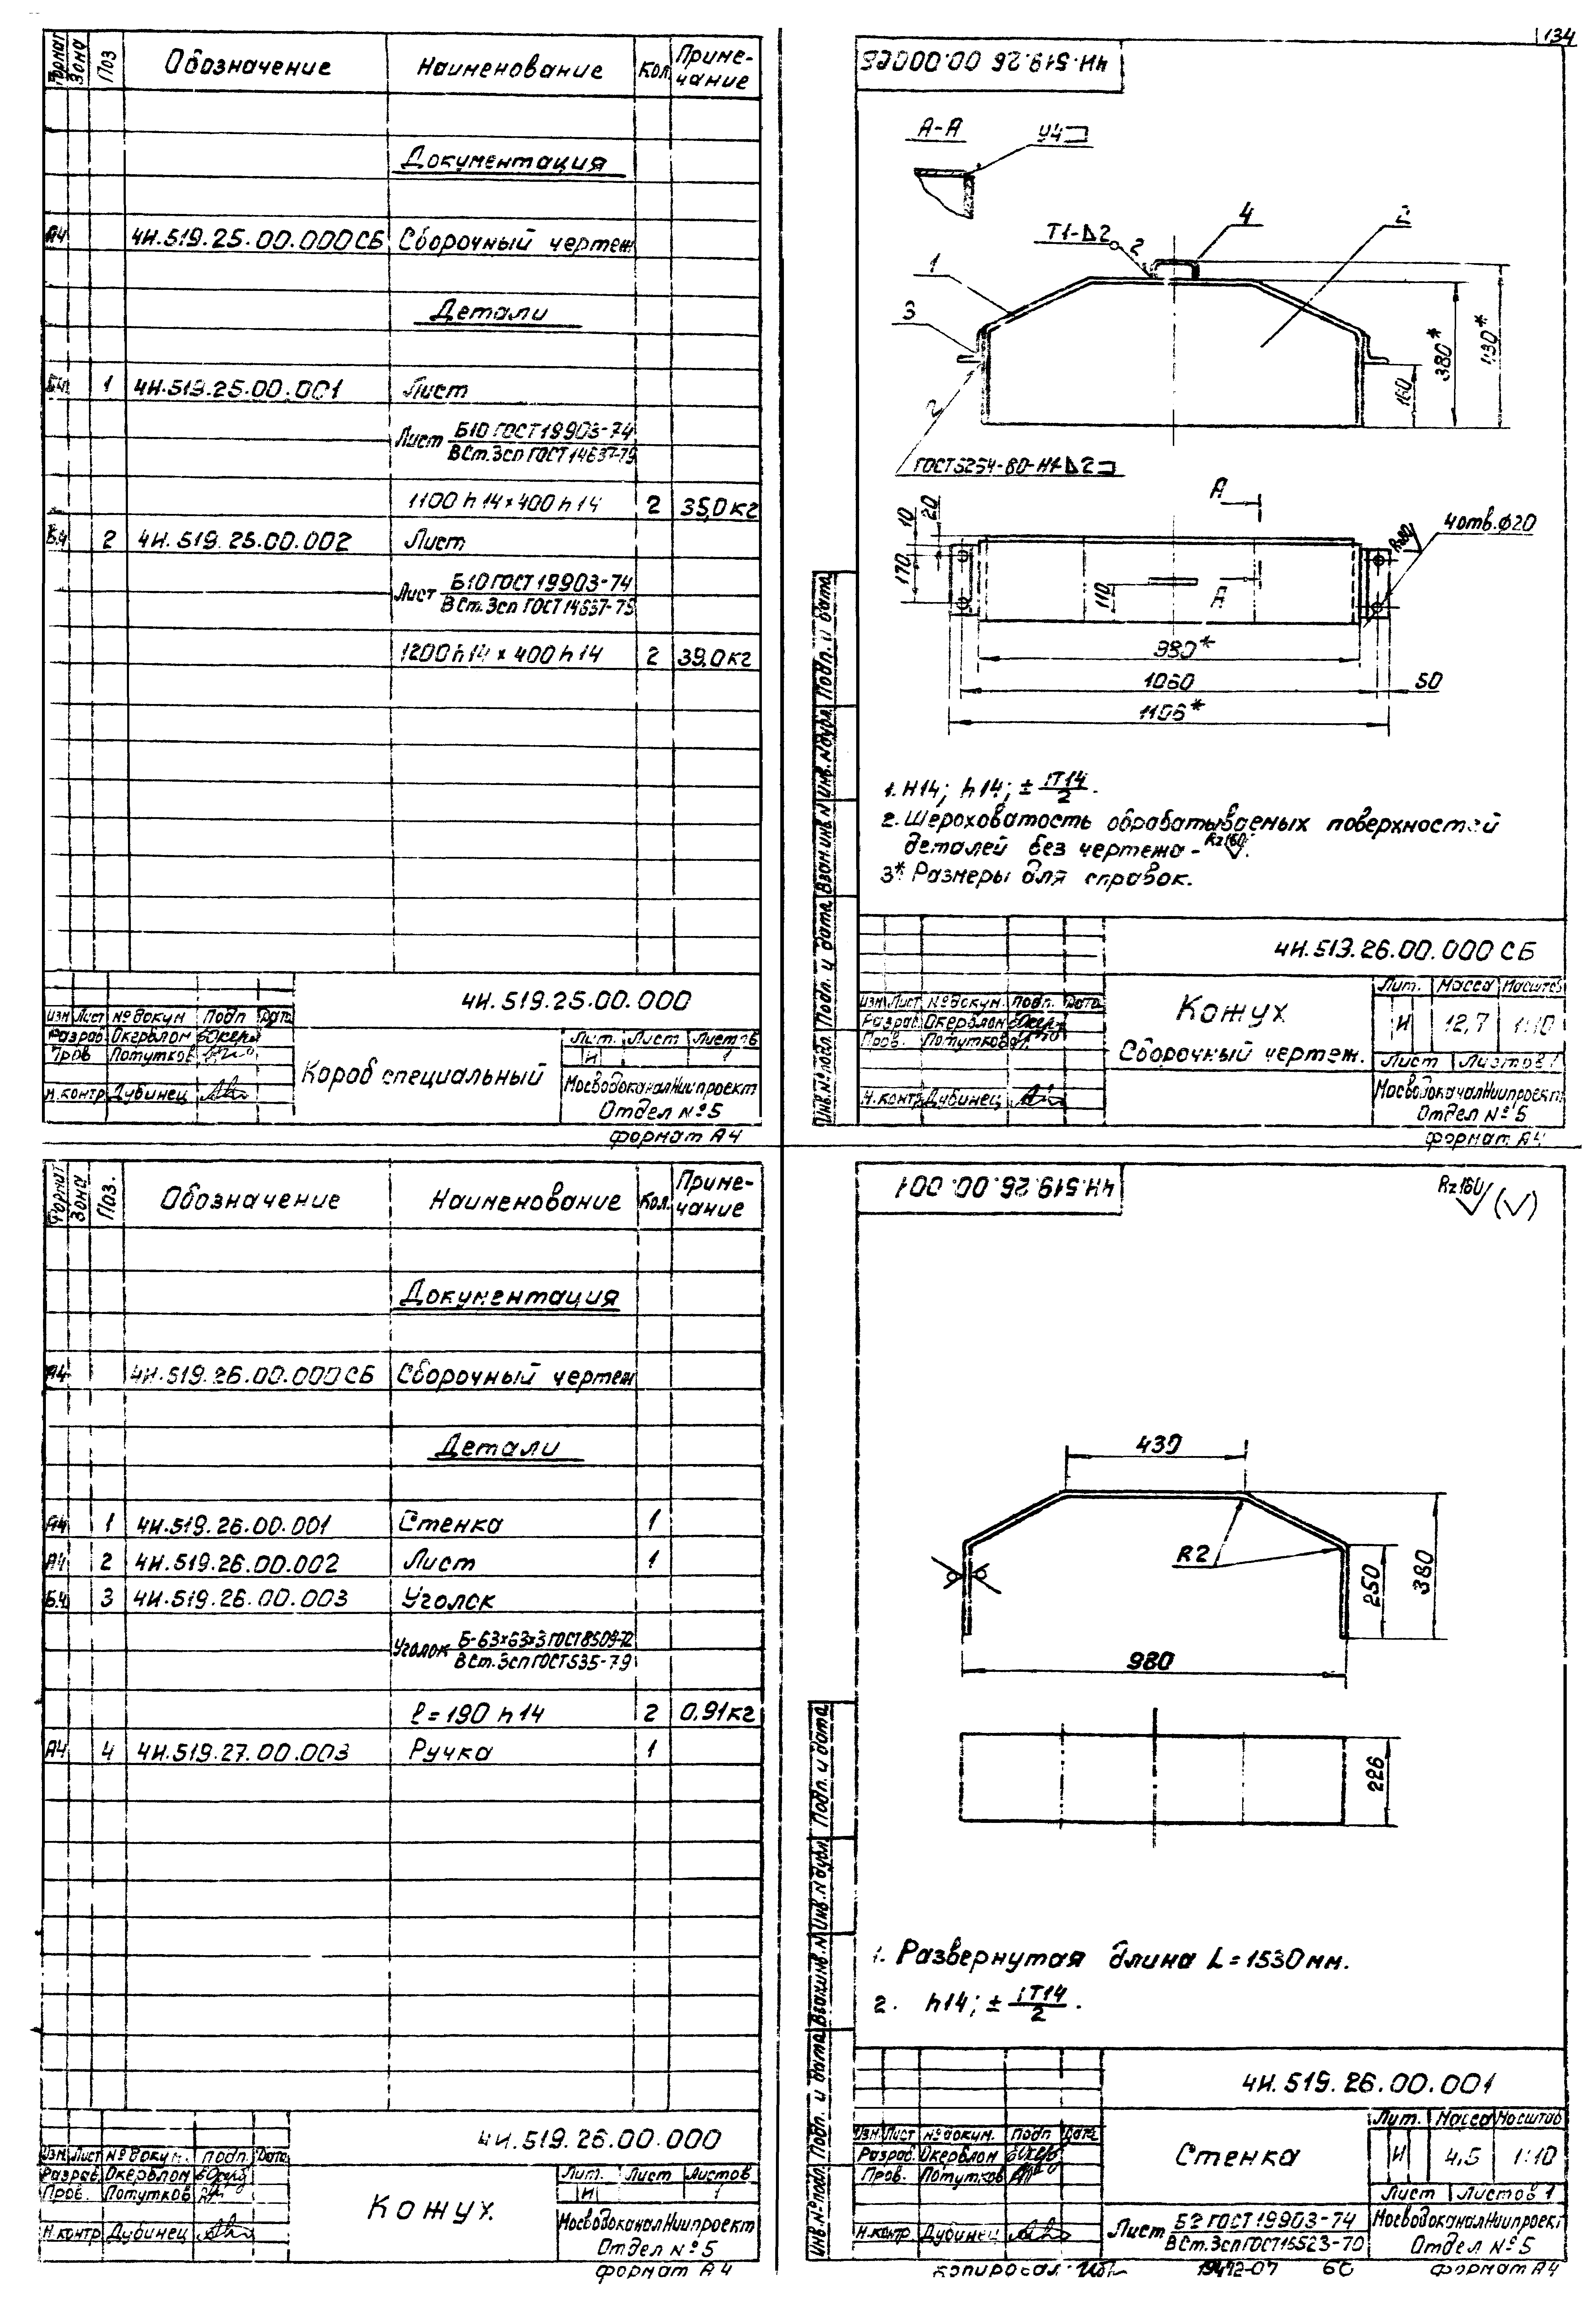 134
Формат Зона Поз Обозначение Наименование Кол. Приме-
чание
Документация
А4 4И.519.25.00.000СБ Сборочный чертеж
Детали
Б4 1 4И.519.25.00.001 Лист
Лист Б10 ГОСТ 19903-74
ВСт.3сп ГОСТ 14637-79
1100 h14 × 400 h14 2 35,0кг
Б4 2 4И.519.25.00.002 Лист
Лист Б10 ГОСТ 19903-74
ВСт.3сп ГОСТ 14637-79
1200 h14 × 400 h14 2 39,0кг
4И.519.25.00.000
Изм Лист № докум Подп Дата
Разраб Окерблом
Пров Потутков
Н.контр Дубинец
Короб специальный
Лит. Лист Листов
И 1
МосводоканалНиипроект
Отдел №5
формат А4
4И.519.26.00.000СБ
А-А
У4
Т1-Δ2
2
4
2
1
3
380*
430*
160
2
ГОСТ 5264-80-Н1-Δ2
А
10
20
170
110
А
4 отв. ϕ20
Rz80
980*
1060
50
1106*
1. Н14; h14; ± IT14/2.
2. Шероховатость обрабатываемых поверхностей
деталей без чертежа - Rz160.
3* Размеры для справок.
Инв.№ подл. Подп. и дата Взам.инв.N Инв.N дубл. Подп. и дата
4И.513.26.00.000 СБ
Изм Лист № докум. Подп. Дата
Разраб Окерблом
Пров. Потутков
Н.контр Дубинец
Кожух
Сборочный чертеж.
Лит. Масса Масштаб
И 12,7 1:10
Лист Листов 1
МосводоканалНиипроект
Отдел №5
формат А4
Формат Зона Поз. Обозначение Наименование Кол. Приме-
чание
Документация
А4 4И.519.26.00.000СБ Сборочный чертеж
Детали
А4 1 4И.519.26.00.001 Стенка 1
А4 2 4И.519.26.00.002 Лист 1
Б4 3 4И.519.26.00.003 Уголок
Уголок Б-63×63×3 ГОСТ 8509-72
ВСт.3сп ГОСТ 535-79
ℓ=190 h14 2 0,91кг
А4 4 4И.519.27.00.003 Ручка 1
4И.519.26.00.000
Изм Лист № докум. подп. Дата
Разраб Окерблом
Пров. Потутков
Н.контр Дубинец
Кожух.
Лит. Лист Листов
И 1
МосводоканалНиипроект
Отдел №5
формат А4
4И.519.26.00.001
Rz160 (√)
430
R2
250
380
980
226
1. Развернутая длина L=1530мм.
2. h14; ± IT14/2.
Инв.№ подл. Подп. и дата Взам.инв.N Инв.N дубл. Подп. и дата
4И.519.26.00.001
Изм Лист № докум. Подп Дата
Разраб. Окерблом
Пров. Потутков
Н.контр Дубинец
Стенка
Лит. Масса Масштаб
И 4,5 1:10
Лист Листов 1
Лист Б2 ГОСТ 19903-74
ВСт.3сп ГОСТ 16523-70
МосводоканалНиипроект
Отдел №5
Копировал 19472-07 60 формат А4